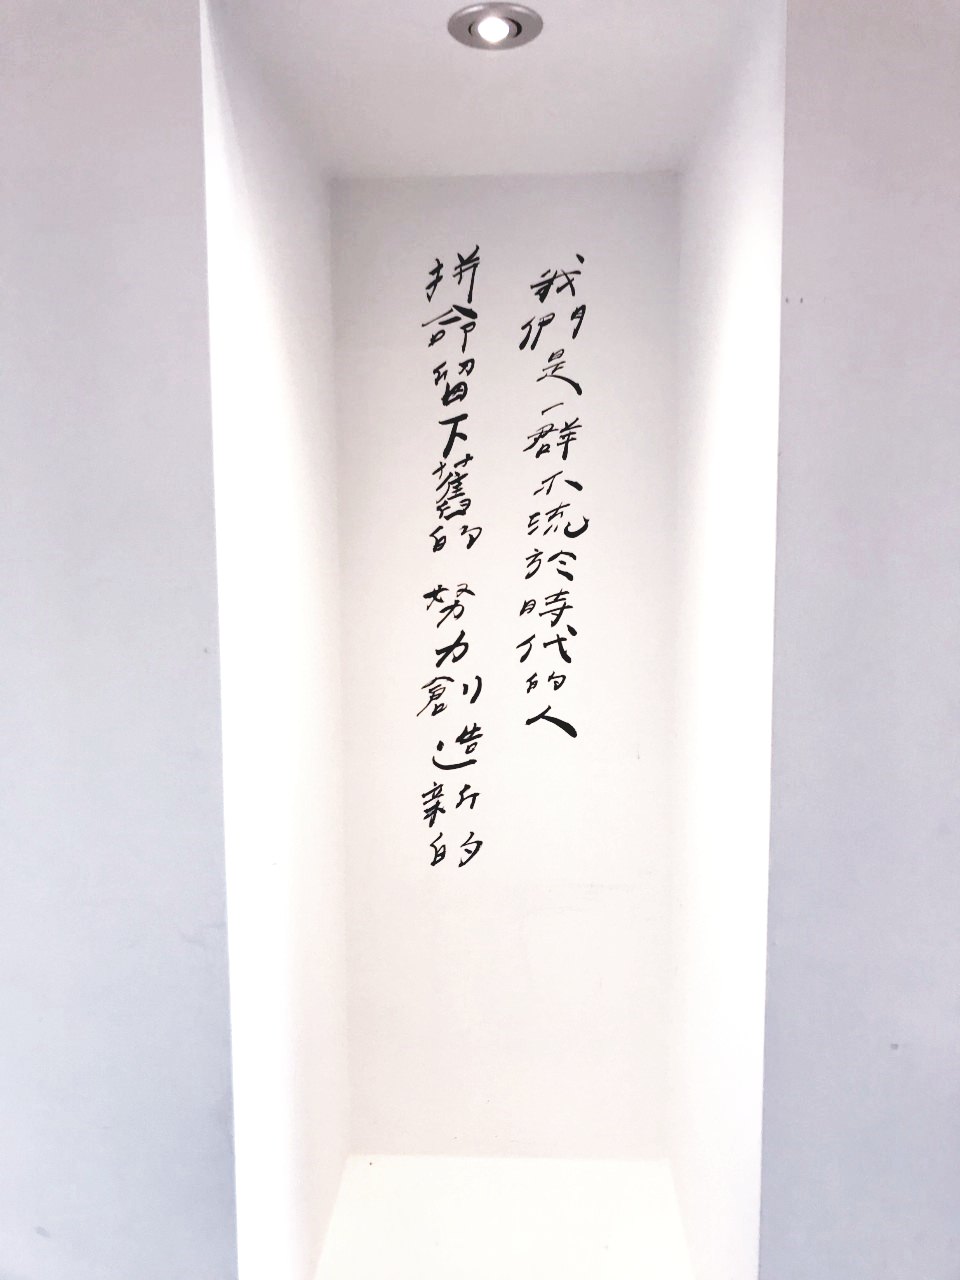 我們是一群不流於時代的人
拼命留下舊的 努力創造新的